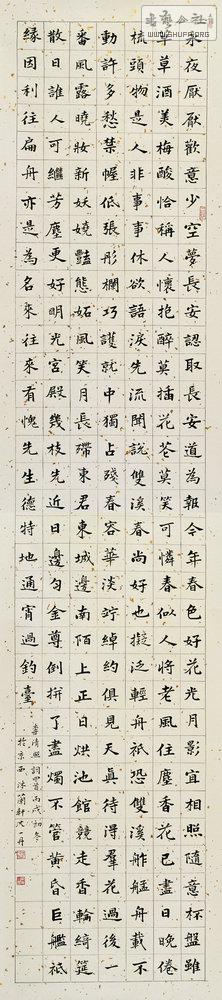 永夜厭厭歡意少空夢長安認取長安道為報今年春色好花光月影宜相照隨意杯盤雖
草草酒美梅酸恰稱人懷抱醉莫插花花莫笑可憐春似人將老風住塵香花已盡日晚倦
梳頭物是人非事事休欲語淚先流聞說雙溪春尚好也擬泛輕舟祇恐雙溪舴艋舟載不
動許多愁禁幄低張彤欄巧護就中獨占殘春容華淡竚綽約俱見天真待得羣花過後一
番風露曉妝新妖嬈豔態妒風笑月長殢東君東城邊南陌上正日烘池館競走香輪綺筵
散日誰人可繼芳塵更好明光宮殿幾枝先近日邊勻金尊倒拚了盡燭不管黃昏巨艦祇
緣因利往扁舟亦是為名來往來有愧先生德特地通宵過釣臺
李清照詞四首丙戌初冬
於京西